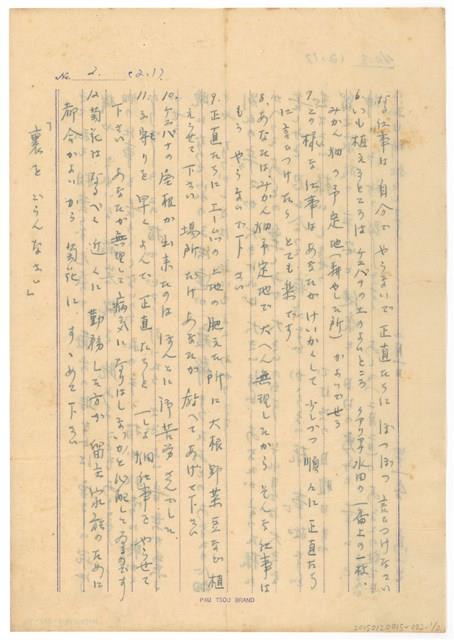 No. 2. (2.17)
な仕事は自分でやらないで正直たちにぼつぼつ言ひつけなさい
6.いも植えるところは の上のよいところ 水田の一番上の一枚、
みかん畑の予定地(耕やした所)がよいでせう
7.この様な仕事はあなたがけいかくして少しづつ順々に正直たち
に言ひつけたら とても楽です
8.あなたは、みかん畑予定地で大へん無理したから そんな仕事は
もうやらないで下さい
9.正直たちに の土地の肥えた所に大根野菜豆など植
えらせて下さい 場所だけあなたが教へてあげて下さい
10. の屋根が出来たのは ほんとに御苦労さんでした
11.子守りを早くよんで 正直たちと一しよ 畑仕事で やらせて
下さい あなたが無理して病気になりはしないかと心配して居ります
12.菊花は なるべく近くに勤務した方が 留主家族のために
都合がよいから 菊花に すゝめて下さい
「裏を ごらんなさい」
PAU TSOU BRAND